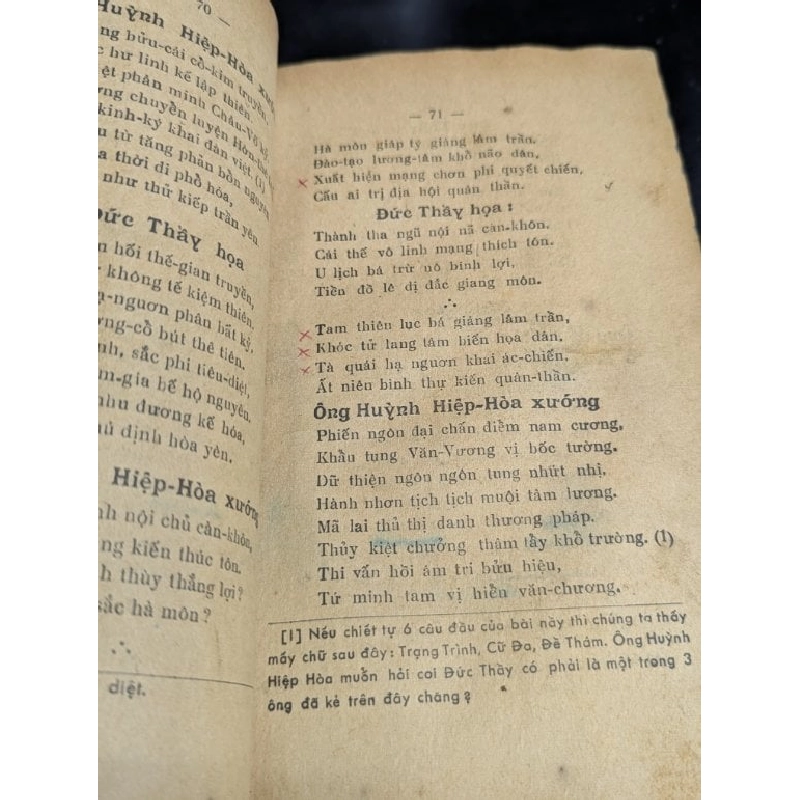 — 70 —
Huỳnh Hiệp-Hòa xướng
bửu-cái cổ-kim truyền,
hư linh kế lập thiên.
phân minh Châu-Võ
chuyển luyện
kinh-ký khai đàn việt. (1)
tử tăng phản bổn nguyên
thời di phổ hóa,
như thử kiếp trần yên
Đức Thầy họa
hồi thế-gian truyền,
không tế kiệm thiên.
-nguơn phân bất kỷ,
-cồ bút thê tiên.
sắc phi tiêu-diệt,
-gia bế hộ nguyên.
như đương kế hóa,
định hòa yên.
Hiệp-Hòa xướng
nội chủ càn-khôn,
kiến thúc tôn.
thùy thắng lợi?
sắc hà môn?
diệt.
— 71 —
Hà môn giáp tý giáng lâm trần.
Đào-tạo lương-tâm khổ não dân,
Xuất hiện mạng chơn phi quyết chiến,
Cầu ai trị địa hội quân thần.
Đức Thầy họa :
Thành tha ngũ nội nã càn-khôn.
Cái thế vô linh mạng thích tôn.
U lịch bá trừ nô binh lợi,
Tiền đồ lê dị đắc giang môn.
Tam thiên lục bá giáng lâm trần,
Khóc tử lang tâm biến họa dân.
Tà quái hạ nguơn khai ác-chiến,
Ất niên bính thự kiến quân-thần.
Ông Huỳnh Hiệp-Hòa xướng
Phiến ngôn đại chấn điểm nam cương,
Khẩu tụng Văn-Vương vị bốc tường.
Dữ thiện ngôn ngôn tung nhứt nhị,
Hành nhơn tịch tịch muội tâm lương.
Mã lai thủ thị danh thượng pháp.
Thủy kiệt chưởng thâm tẩy khổ trường. (1)
Thi vấn hồi âm tri bửu hiệu,
Tứ minh tam vị hiền văn-chương.
[1] Nếu chiết tự 6 câu đầu của bài này thì chúng ta thấy
mấy chữ sau đây: Trạng Trình, Cữ Đa, Đề Thám. Ông Huỳnh
Hiệp Hòa muốn hỏi coi Đức Thầy có phải là một trong 3
ông đã kẻ trên đây chăng?